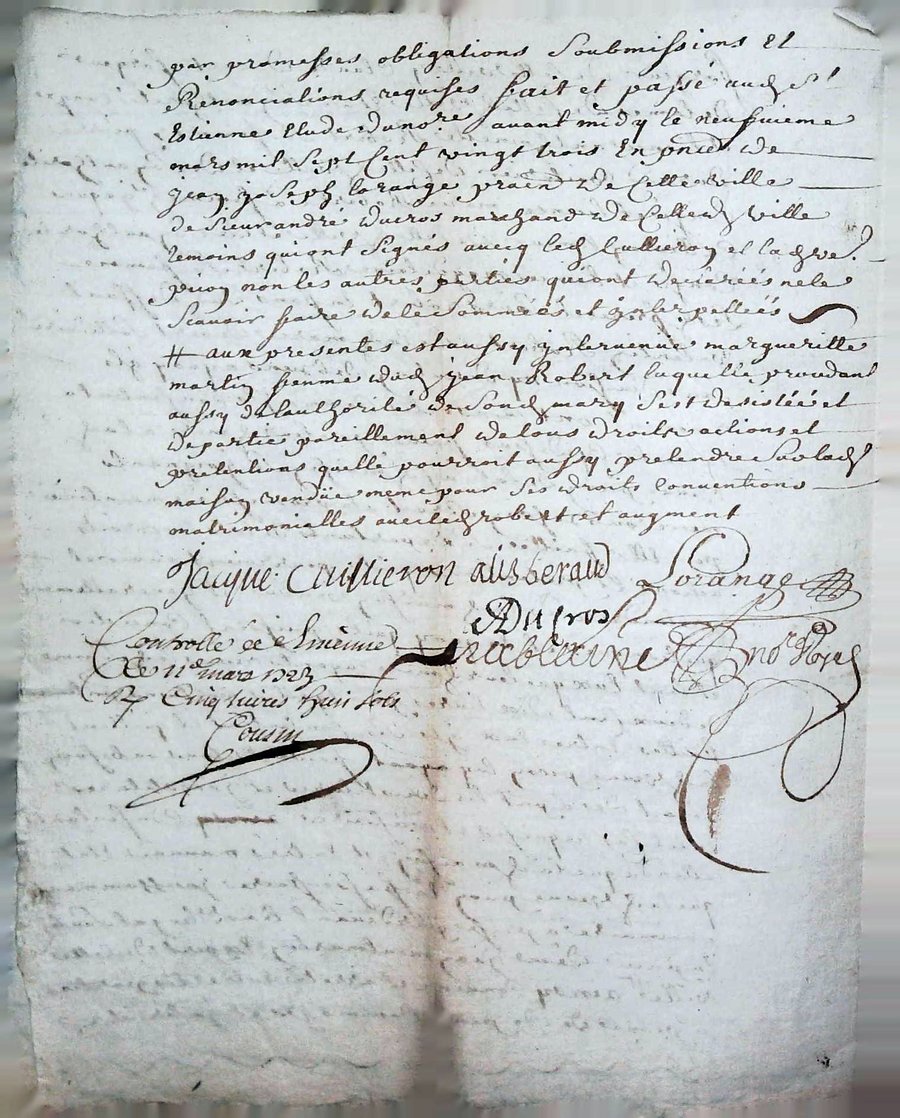 par promesses obligations Soubmissions Et
Renonciations requises fait et passé aud St
Estienne Etude du nore avant midy le neufuieme
mars mil Sept Cent vingt trois En pnce de
jean joseph lorange pratn de Cette ville
de Sieur andré ducros marchand de Celled ville
temoins qui ont Signés avecq led Cullieron et lad ve
non les autres parties qui ont declarées ne le
Scavoir faire de le Sommées et ynterpellées
# aux presentes est aussy yntervenue margueritte
martin femme dud jean Robert laquelle procedant
aussy de lauthorité de Sond mary Sest desistéé et
departie pareillement de tous droits actions et
pretentions quelle pourroit aussy pretendre Sur lad
maison vendue meme pour Ses droits Conventions
matrimonialles avec led robert et augment
Jacque Cullieron beraud Lorange
ADucros
Controlle le
Le 11e mars 1723
R Cinq livres huit Sols
Cousin